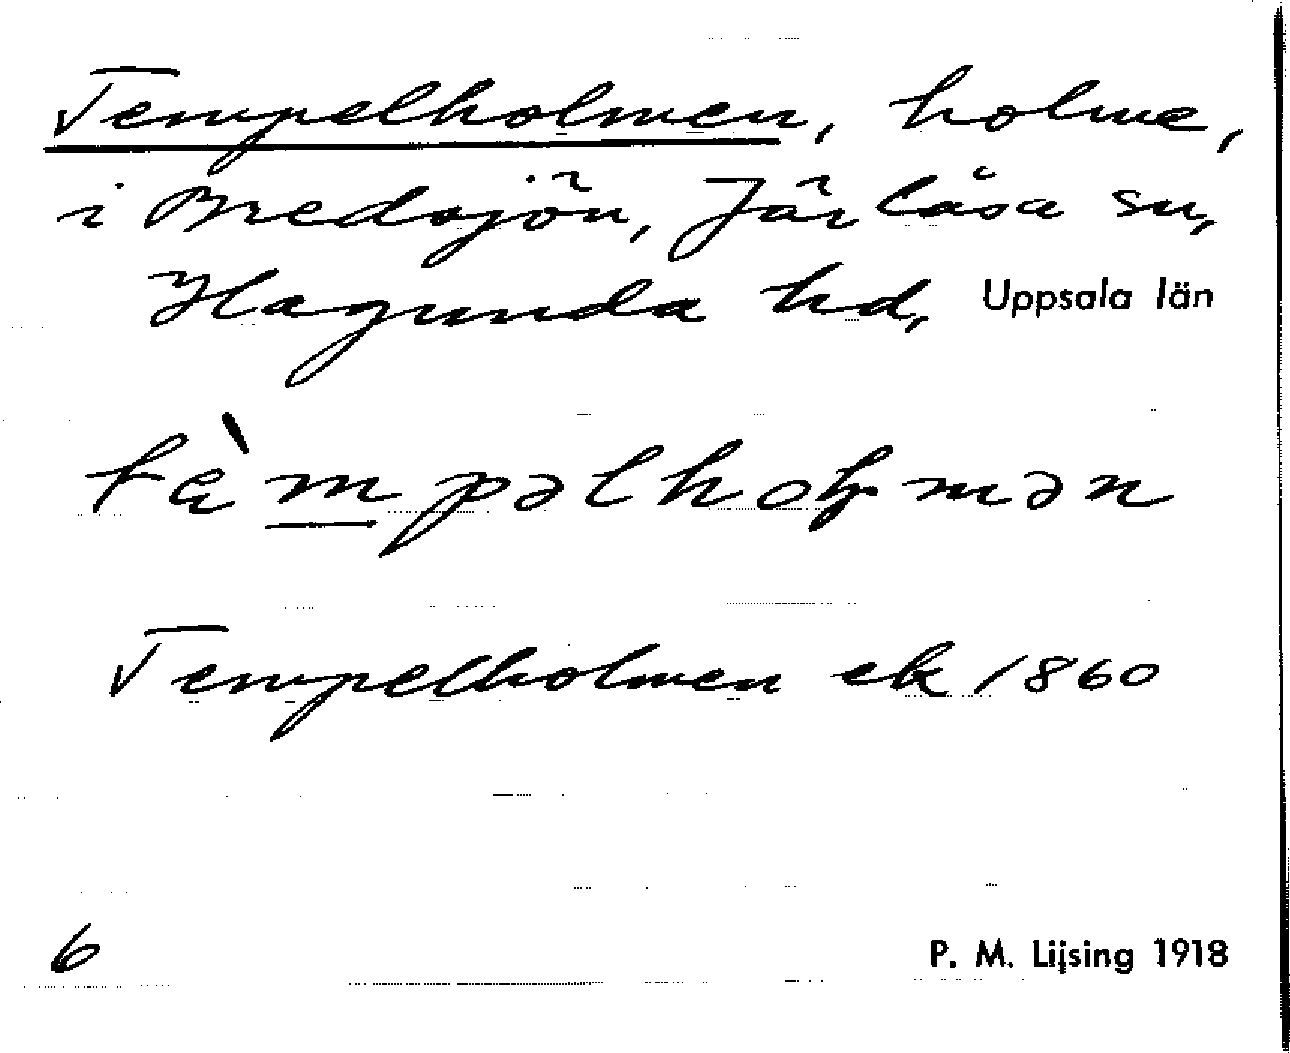 Tempelholmen, holme,
i Bredsjön, Järlåsa sn,
Hagunda hd, Uppsala län
Tempelholmen ek 1860
6
P. M. Lijsing 1918